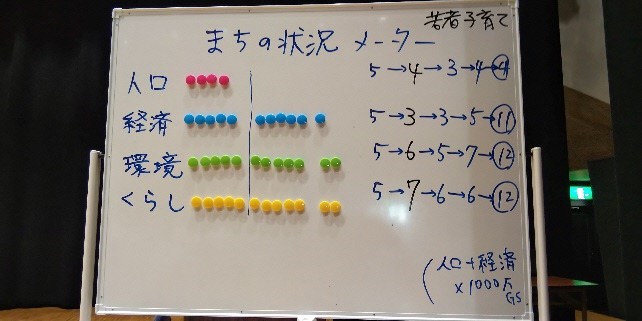 若者子育て
まちの状況メーター
人口 5→4→3→4→④
経済 5→3→3→5→⑪
環境 5→6→5→7→⑫
くらし 5→7→6→6→⑫
(人口+経済
×1000万
GS